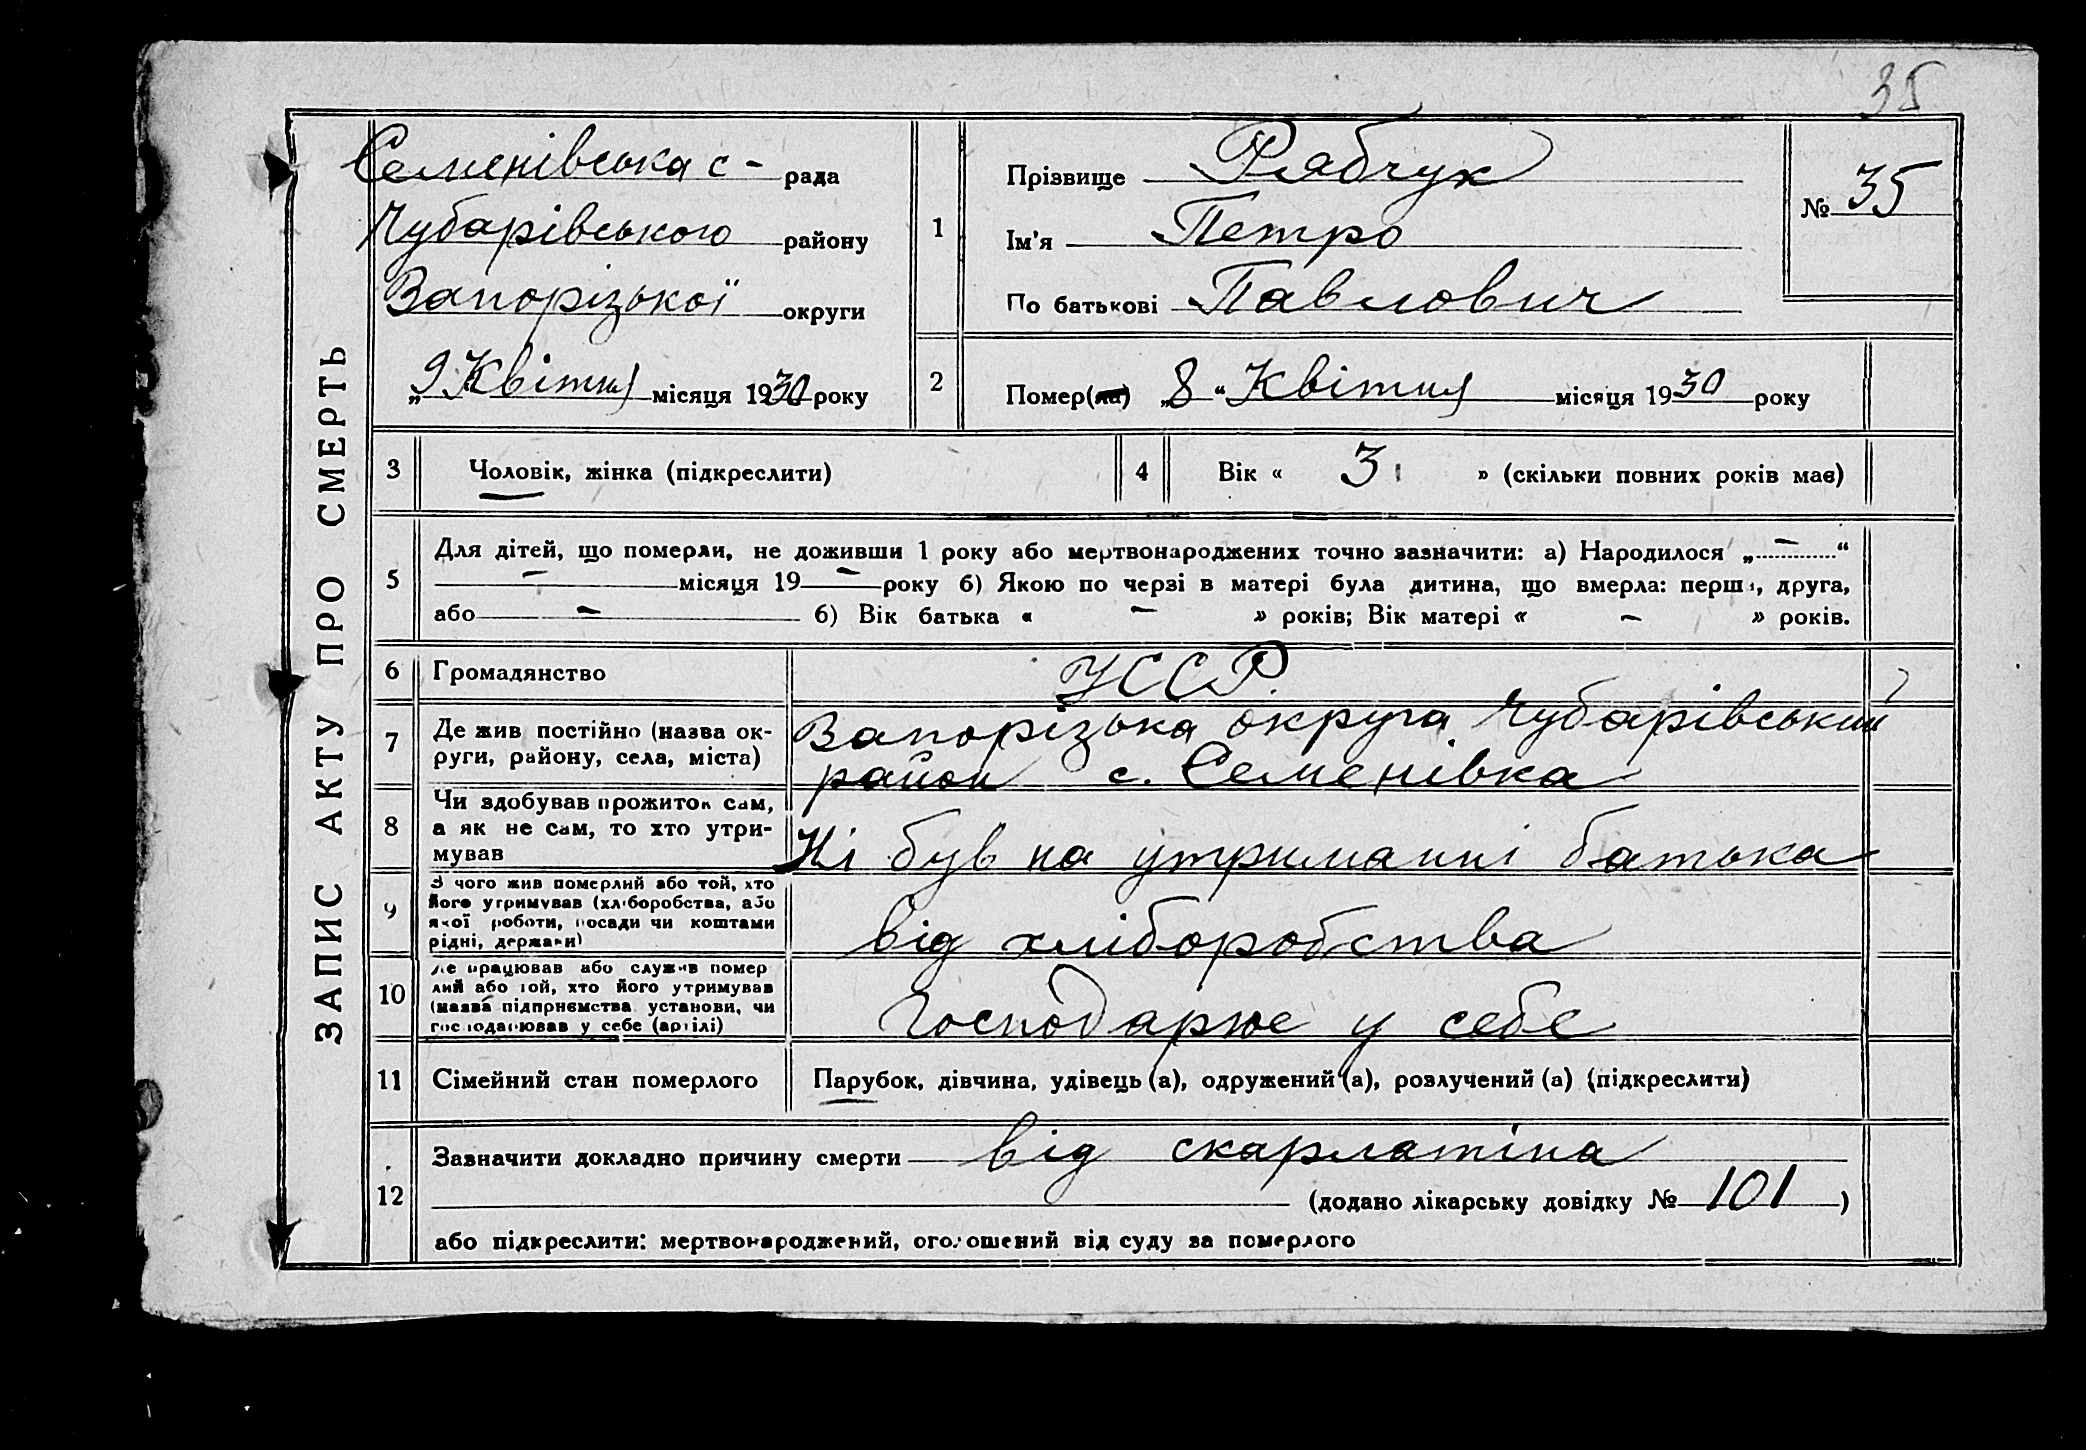 35
ЗАПИС АКТУ ПРО СМЕРТЬ
Семенівська с - рада
Чубарівського району
Запорізької округи
„ 9 Квітня місяця 1930 року
1
Прізвище Рябчук
Ім'я Петро
По батькові Павлович
№ 35
2
Помер(ла) „ 8 “ Квітня місяця 1930 року
3 Чоловік, жінка (підкреслити)
4 Вік « 3 » (скільки повних років має)
5
Для дітей, що померли, не доживши 1 року або мертвонароджених точно зазначити: а) Народилося „ — “
— місяця 19 — року б) Якою по черзі в матері була дитина, що вмерла: перша, друга,
або — б) Вік батька « — » років; Вік матері « — » років.
6 Громадянство УССР.
7 Де жив постійно (назва ок-
руги, району, села, міста)
Запорізька округа Чубарівський
район с. Семенівка
8 Чи здобував прожиток сам,
а як не сам, то хто утри-
мував
Ні був на утриманні батька
9 З чого жив померлий або той, хто
його утримував (хліборобства, або
якої роботи, посади чи коштами
рідні, держави)
від хліборобства
10 Де працював або служив помер
лий або той, хто його утримував
(назва підприємства установи, чи
господарював у себе (артілі)
Господарює у себе
11 Сімейний стан померлого Парубок, дівчина, удівець (а), одружений (а), розлучений (а) (підкреслити)
12
Зазначити докладно причину смерти від скарлатіна
(додано лікарську довідку № 101 )
або підкреслити: мертвонароджений, оголошений від суду за померлого